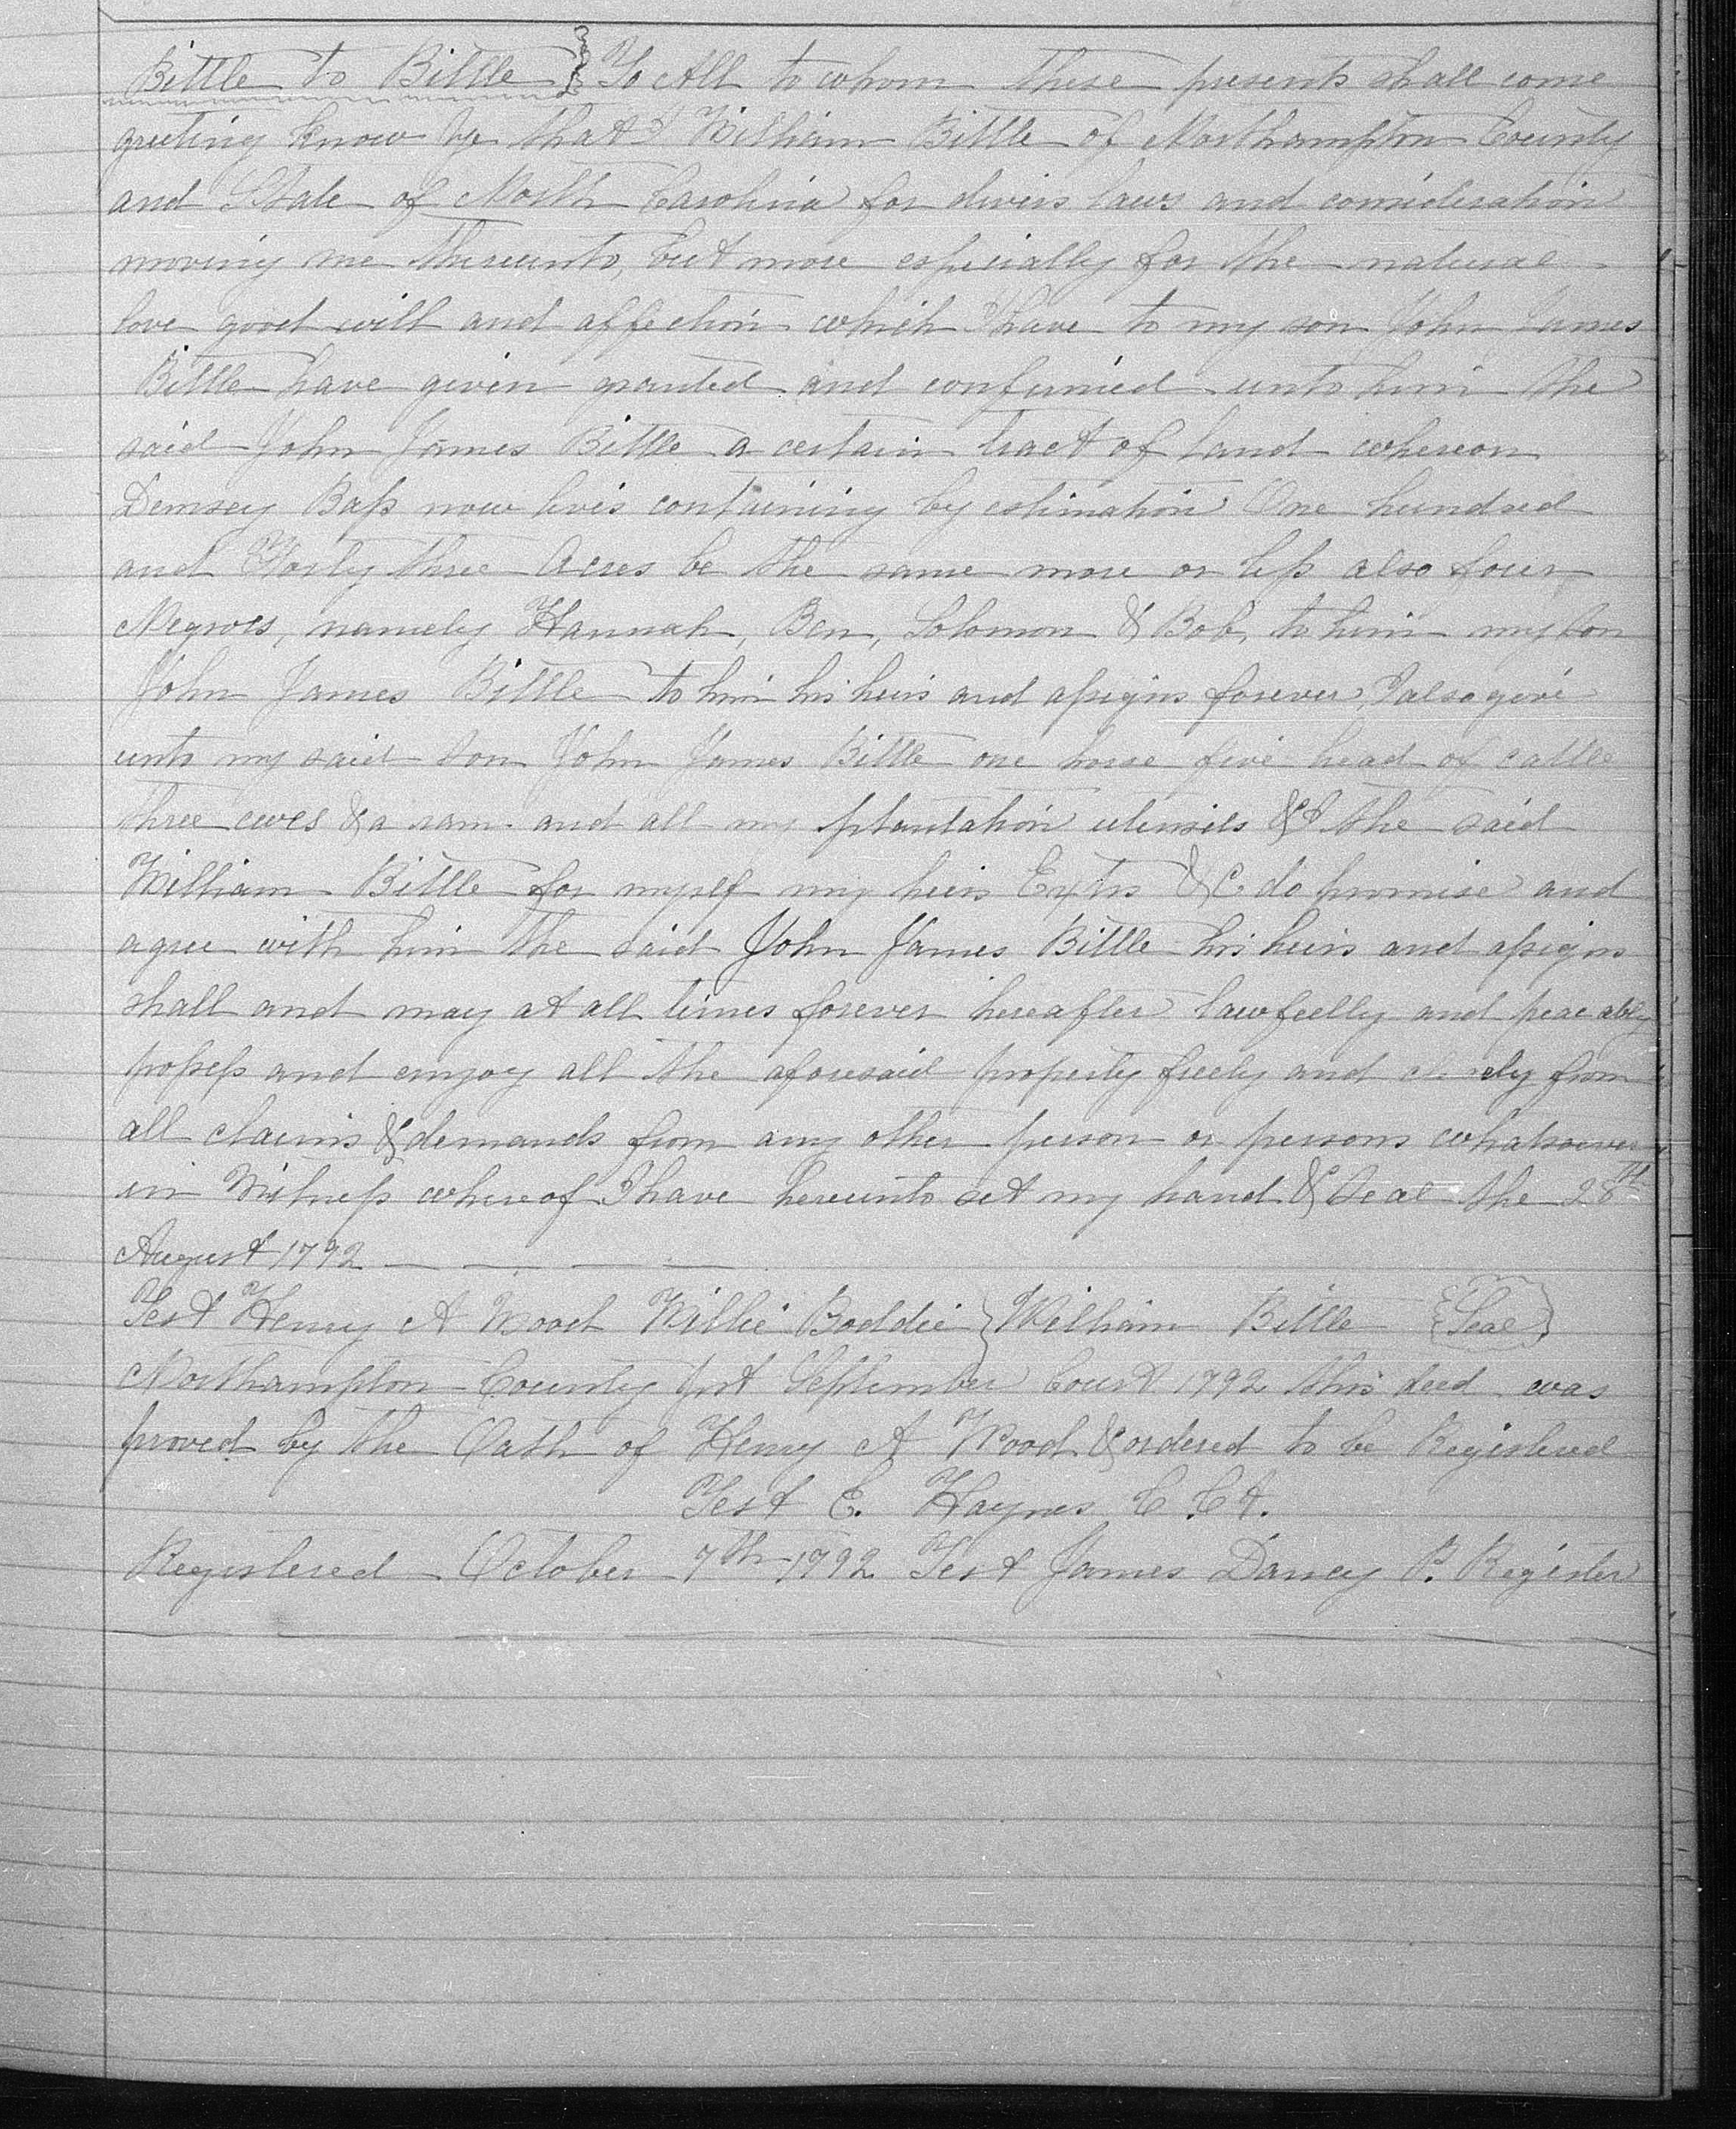 Bittle to Bittle } To All to whom these presents shall come
greeting know ye that I William Bittle of Northampton County
and State of North Carolina for divers laws and consideration
moving me thereunto, but more especially for the natural
love good will and affection which I have to my son John James
Bittle have given granted and confirmed unto him the
said John James Bittle a certain tract of land whereon
Demsey Bass now lives containing by estimation One hundred
and Forty three Acres be the same more or less also four
Negroes, namely Hannah, Ben, Solomon & Bob, to him my Son
John James Bittle to him his heirs and assigns forever, I also give
unto my said Son John James Bittle one horse five head of cattle
three ewes & a ram. and all my plantation utensils & I the said
William Bittle for myself my heirs Extrs &C do promise and
agree with him the said John James Bittle his heirs and assigns
shall and may at all times forever hereafter lawfully and peaceably
possess and enjoy all the aforesaid property freely and from
all claims & demands from any other person or persons whatsoever
in Witness whereof I have hereunto set my hand & Seal the 28th
August 1792
Test Henry A Wood Willie Boddie } William Bittle {Seal}
Northampton County Sst September Court 1792 this deed was
proved by the Oath of Henry A Wood & ordered to be Registered
Test E. Haynes C. Ct.
Registered October 7th 1792 Test James Dancy P. Register